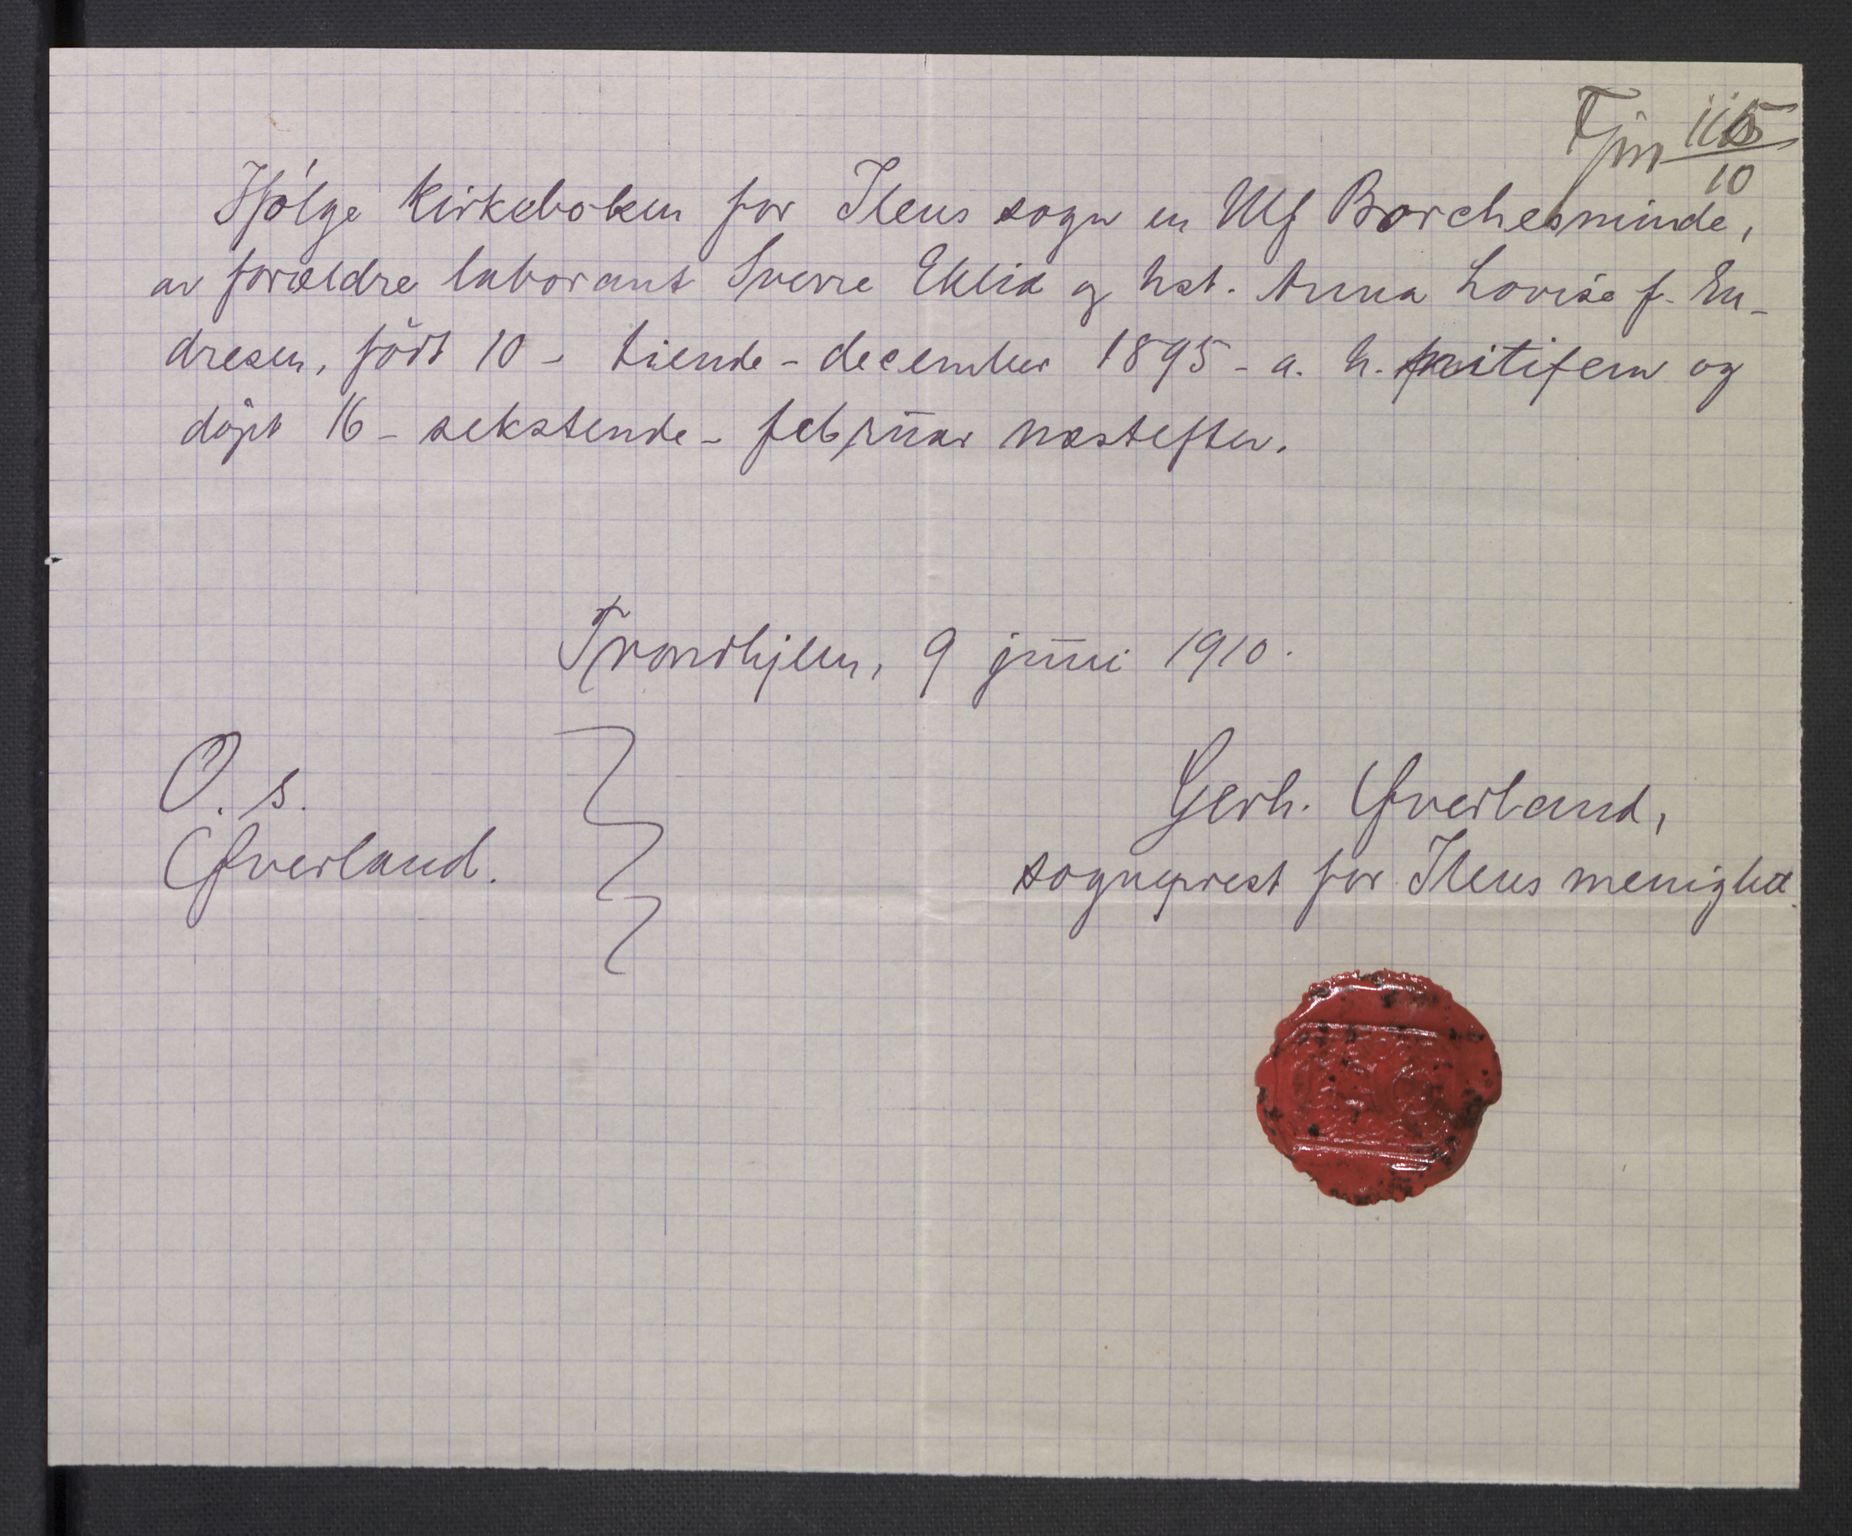 115
10
Ifølge kirkeboken for Ilens sogn er Ulf Borchesminde,
av forældre laborant Sverre Eklid og hst. Anna Lovise f. En-
dresen, født 10 - tiende - december 1895 - a. h. nitifem og
døpt 16 - sekstende - februar næstefter.
Trondhjem, 9 juni 1910.
O. s.
Øverland.
Gerh. Øverland,
sogneprest for Ilens menighet.